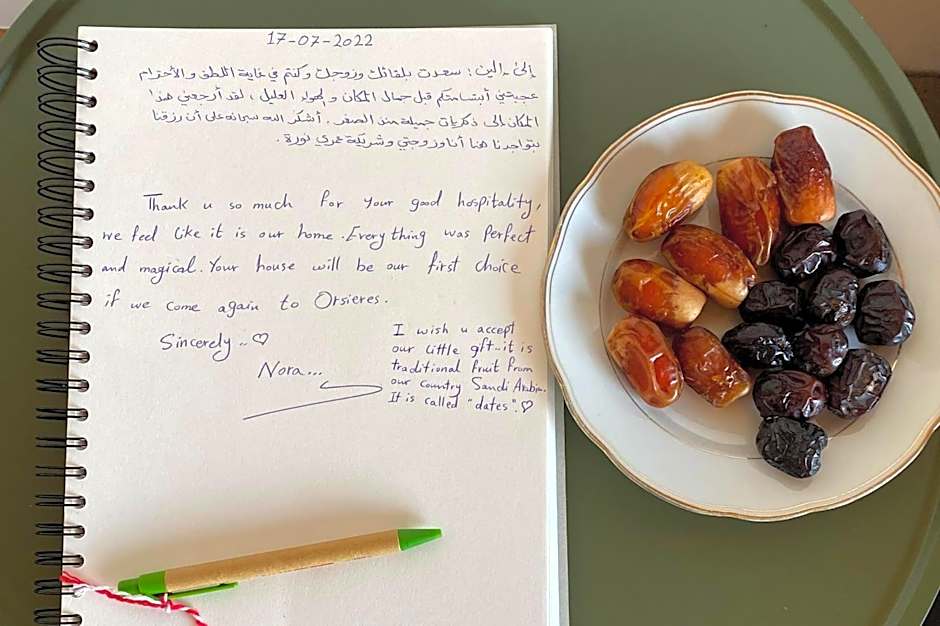 17-07-2022
إلى إلين: سعدت بلقائك وزوجك وكنتم في غاية اللطف والأحترام
عجبتني أبتسامتكم قبل جمال المكان والهواء العليل، لقد أرجعني هذا
المكان إلى ذكريات جميلة منذ الصغر. أشكر الله سبحانه على أن رزقنا
بتواجدنا هنا أنا وزوجتي وشريكة عمري نورة.
Thank u so much for your good hospitality,
we feel like it is our home. Everything was perfect
and magical. Your house will be our first choice
if we come again to Orsieres.
Sincerely.. ♡
Nora...
I wish u accept
our little gift..it is
traditional fruit from
our country Saudi Arabia.
It is called "dates". ♡